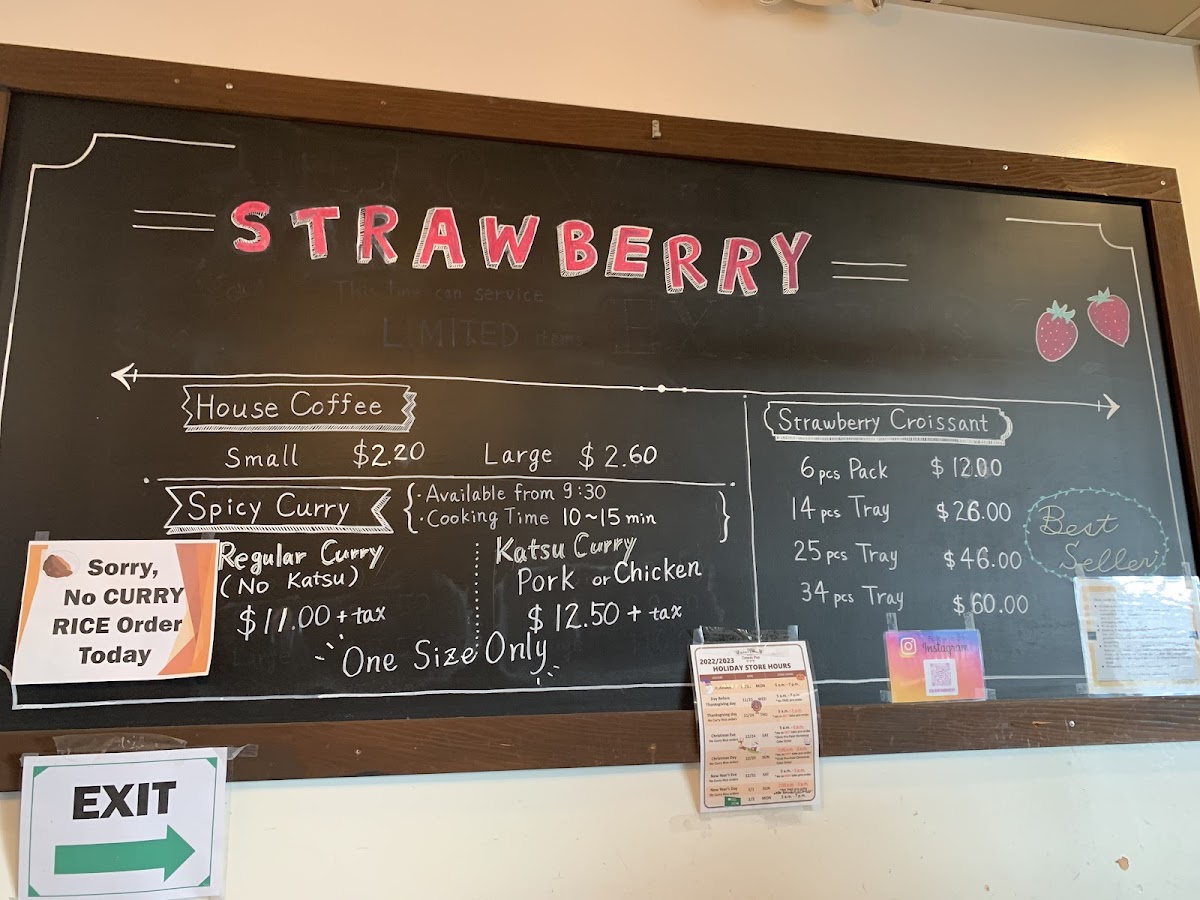 STRAWBERRY
This line can service
LIMITED items
House Coffee
Small $2.20 Large $2.60
Spicy Curry
· Available from 9:30
· Cooking Time 10~15 min
Regular Curry
(No Katsu)
$11.00 + tax
Katsu Curry
Pork or Chicken
$12.50 + tax
One Size Only
Strawberry Croissant
6 pcs Pack $12.00
14 pcs Tray $26.00
25 pcs Tray $46.00
34 pcs Tray $60.00
Best
Seller!
Sorry,
No CURRY
RICE Order
Today
EXIT
2022/2023
HOLIDAY STORE HOURS
Day Before
Thanksgiving day
Thanksgiving day
Christmas Eve
Christmas Day
New Year's Eve
New Year's Day
Instagram